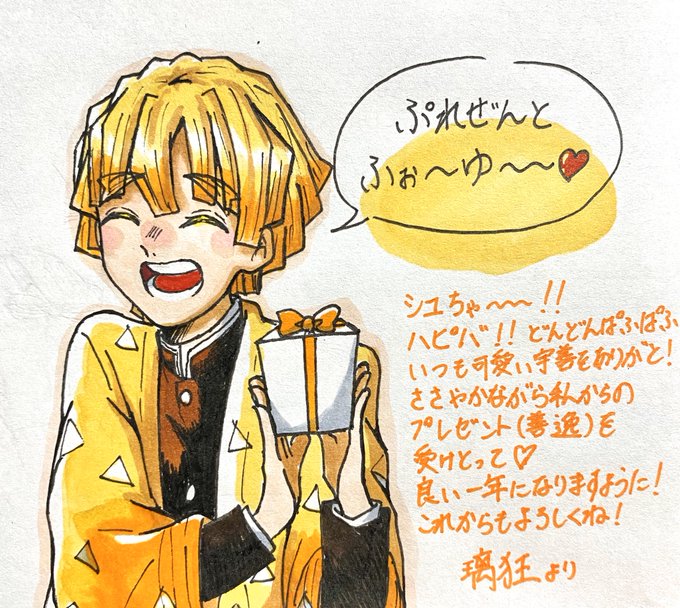 ぷれぜんと
ふぉ〜ゆ〜〜♥
シユちゃ〜〜!!
ハピバ!! どんどんぱふぱふ
いつも可愛い宇善をありがと!
ささやかながら私からの
プレゼント(善逸)を
受けとって♡
良い一年になりますように!
これからもよろしくね!
璃狂より